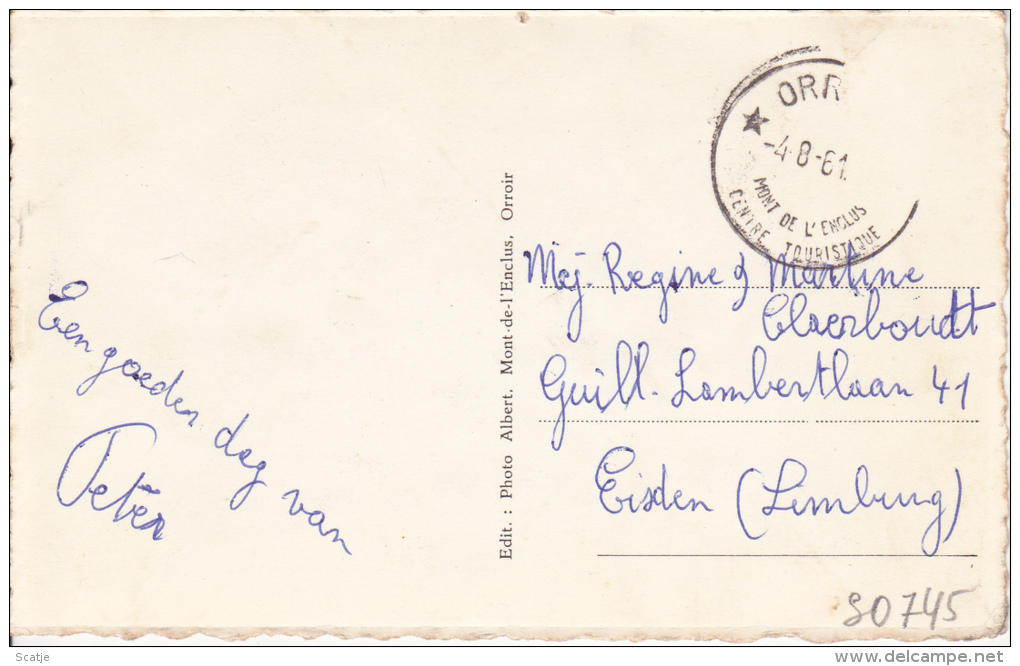 ORR
-4-8-61
MONT DE L'ENCLUS
CENTRE TOURISTIQUE
Een goeden dag van
Peter
Edit. : Photo Albert. Mont-de-l'Enclus, Orroir
Mej. Regine & Martine
Claerboudt
Guill. Lambertlaan 41
Eisden (Limburg)
80745
Scatje
delcampe.net